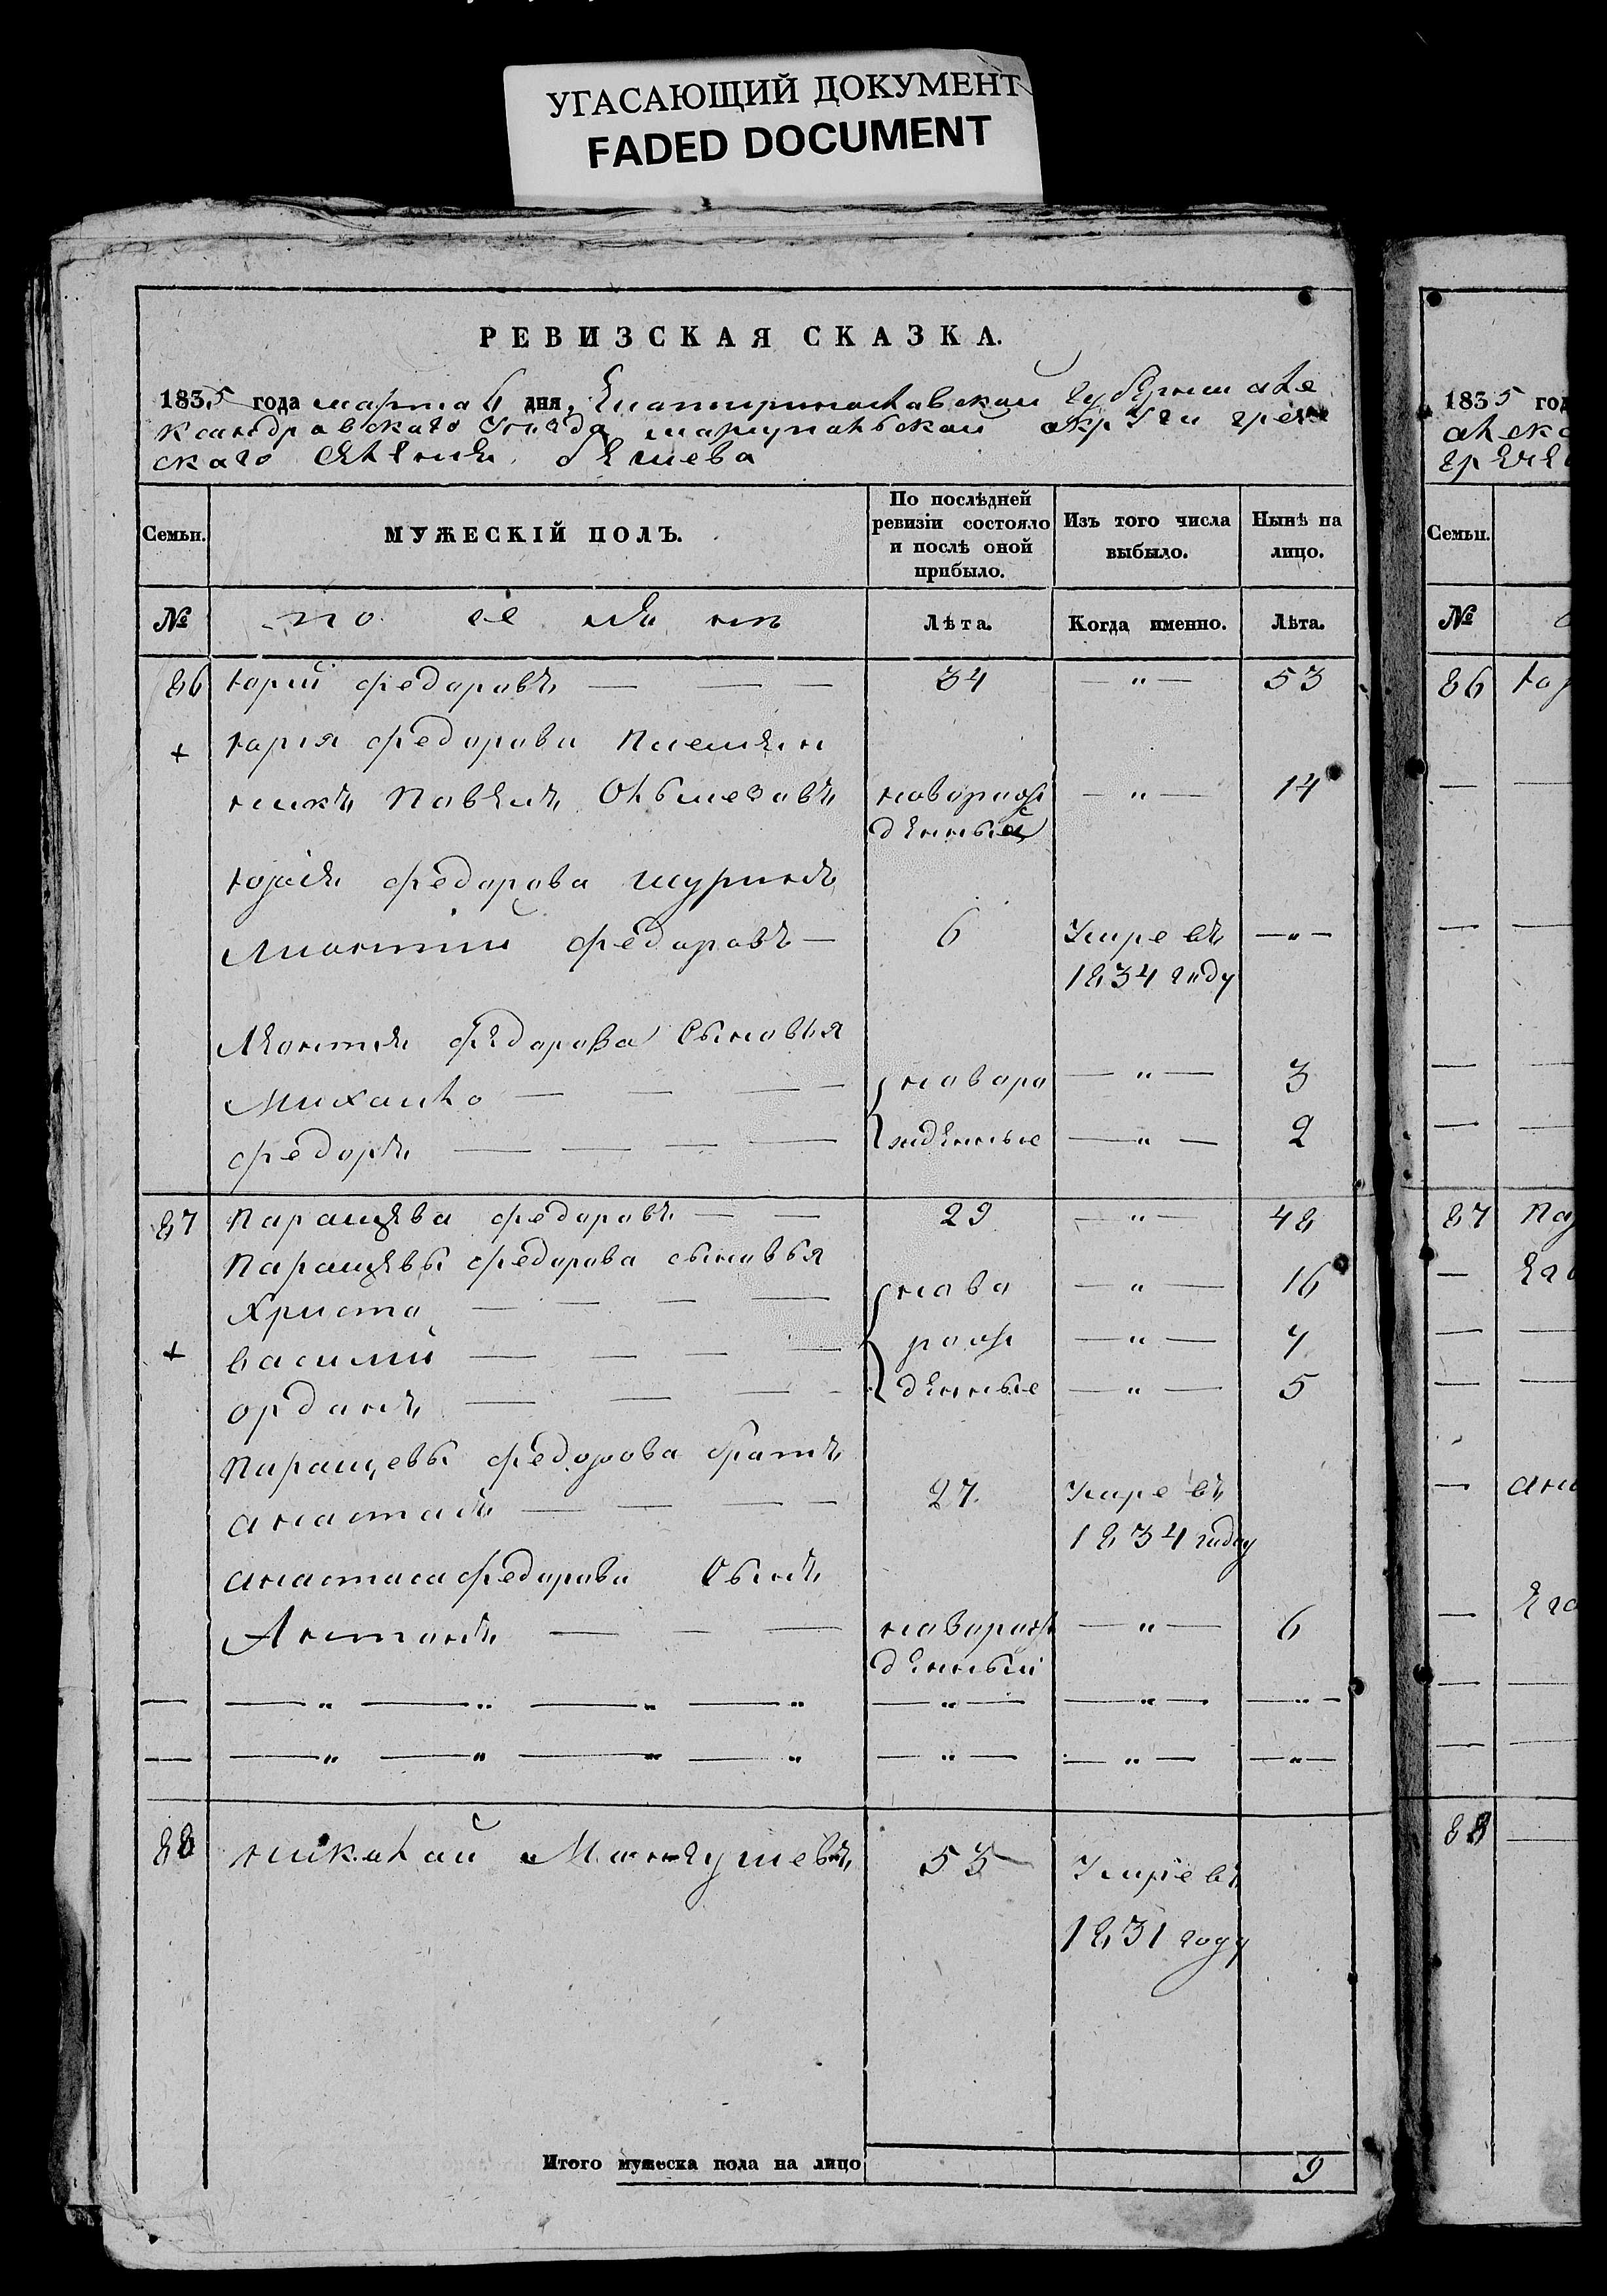 УГАСАЮЩИЙ ДОКУМЕНТ
FADED DOCUMENT
РЕВИЗСКАЯ СКАЗКА.
1835 года марта 6 дня, Екатиринославской губернии але
ксандровскаго уезда мариупольской округи грече
скаго селения бешева
Семьи.
МУЖЕСКІЙ ПОЛЪ.
По послѣдней ревизіи состояло и послѣ оной прибыло.
Изъ того числа выбыло.
Нынѣ на лицо.
№
Лѣта. Когда именно. Лѣта.
86 юрий федоровъ — — — 34 — " — 53
+ юрия федорова племен
никъ Павелъ новорож — " — 14
денный
юрия федорова шуринъ
Леонтий федоровъ — 6 Умре въ — " —
1834 году
Леонтия федорова сыновья
Михайло — — — новоро — " — 3
федоръ — — — жденные — " — 2
87 Паращева федоровъ — — 29 — " — 48
Паращевы федорова сыновья
Христо — — — — ново — " — 16
+ василий — — — — рож — " — 7
орданъ — — — денные — " — 5
Паращевы федорова братъ
анастасъ — — — — 27. Умре въ
1834 году
анастаса федорова сынъ
Антонъ — — — новорож — " — 6
денный
— — " — " — " — " — " — — " — — " —
— — " — " — " — " — " — — " — — " —
88 николай 55 Умре въ
1831 году
Итого мужеска пола на лицо 9
1835 год
алекс
грече
Семьи.
№
86 юр
87 Пар
—
88 —